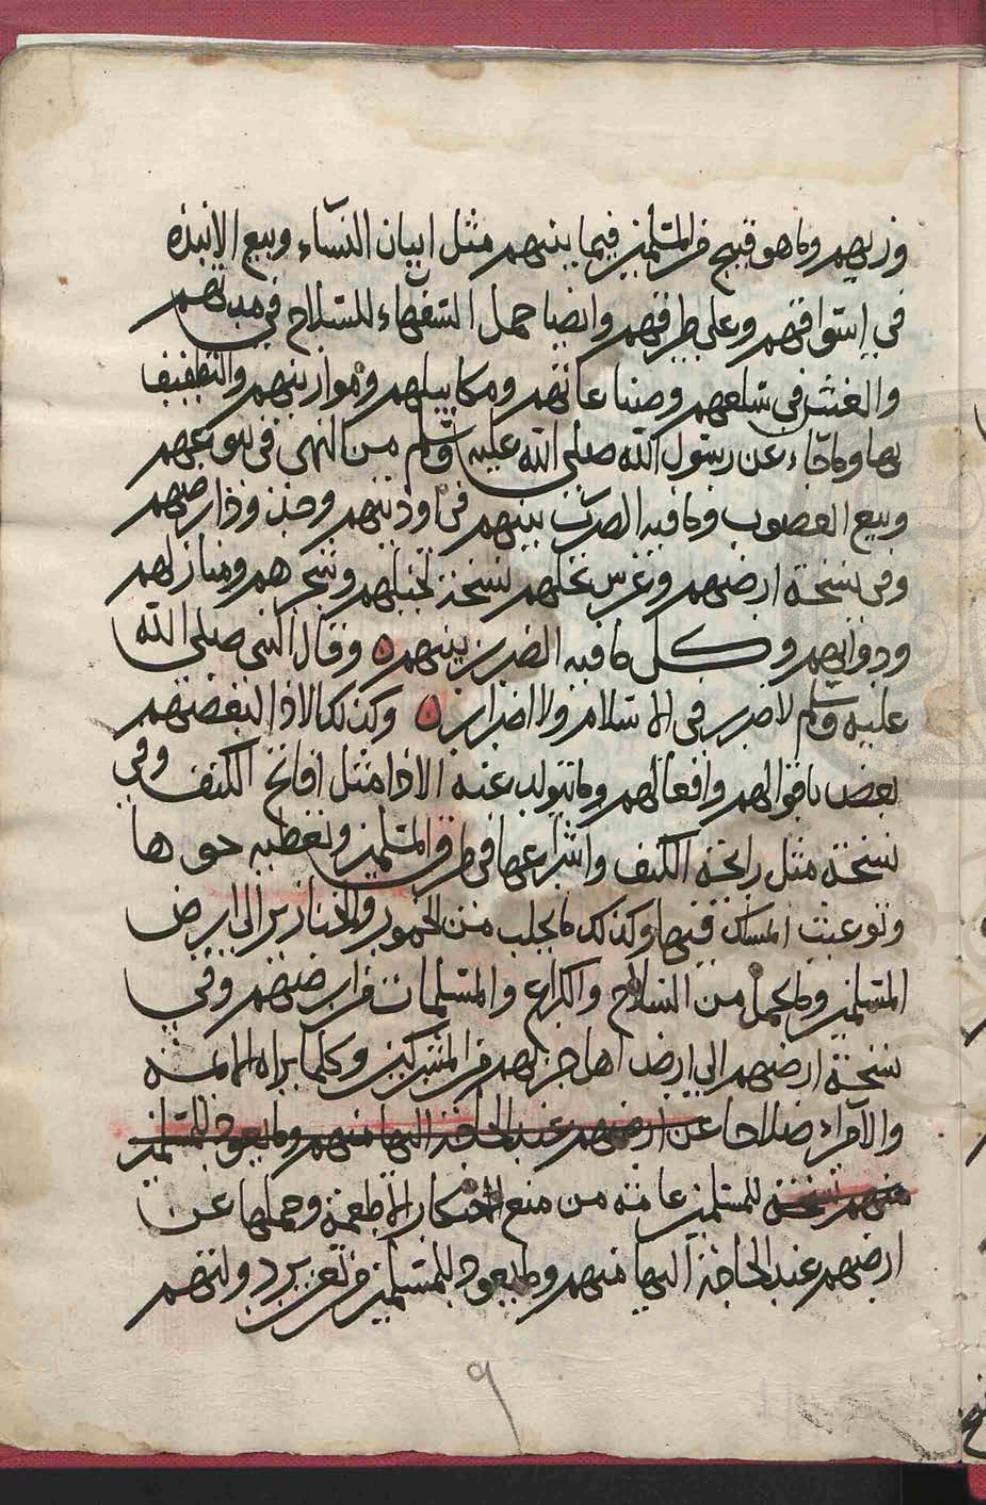 وزيهم وما هو قبيح من المسلمين فيما بينهم مثل اتيان النساء وبيع الانبذه
في اسواقهم وعلى طرقهم وايضا حمل السفهاء للسلاح في مدنهم
والغش في سلعهم وصناعاتهم ومكاييلهم وموازينهم والتطفيف
بها وما جاء عن رسول الله صلى الله عليه وسلم من النهي في بيوعهم
وبيع الغصوب وما فيه الضرر بينهم في اوديتهم وحذو ذا رضهم
وفي نسخة ارضهم وغرس نخلهم نسخة لنخلهم وشجرهم ومنازلهم
ودوابهم وكل ما فيه الضرر بينهم ٥ وقال النبي صلى الله
عليه وسلم لا ضرر في الاسلام ولا اضرار ٥ وكذلك الاذا لبعضهم
بعض باقوالهم وافعالهم وما يتولد عنه الاذا مثل افاتح الكنف وفي
نسخة مثل رايحة الكنف واشراعها في طرق المسلمين وتغطيه حوها
المساكن فيها وكذلك ما يجلب من الخمور والخنازير الى ارض
المسلمين وما يحمل من السلاح والكراع والمسلمات من ارضهم وفي
نسخة ارضهم الى ارض اهل حربهم من المشركين وكلما يراه الائمه
والامراء صلاحا عن ارضهم عند الحاجة اليها منهم وما يعود للمسلمين
منهم نسخة للمسلمين عامته من منع احتكار الاطعمة وحملها عن
ارضهم عند الحاجة اليها منهم وما يعود للمسلمين من تعزيز دولتهم
٩